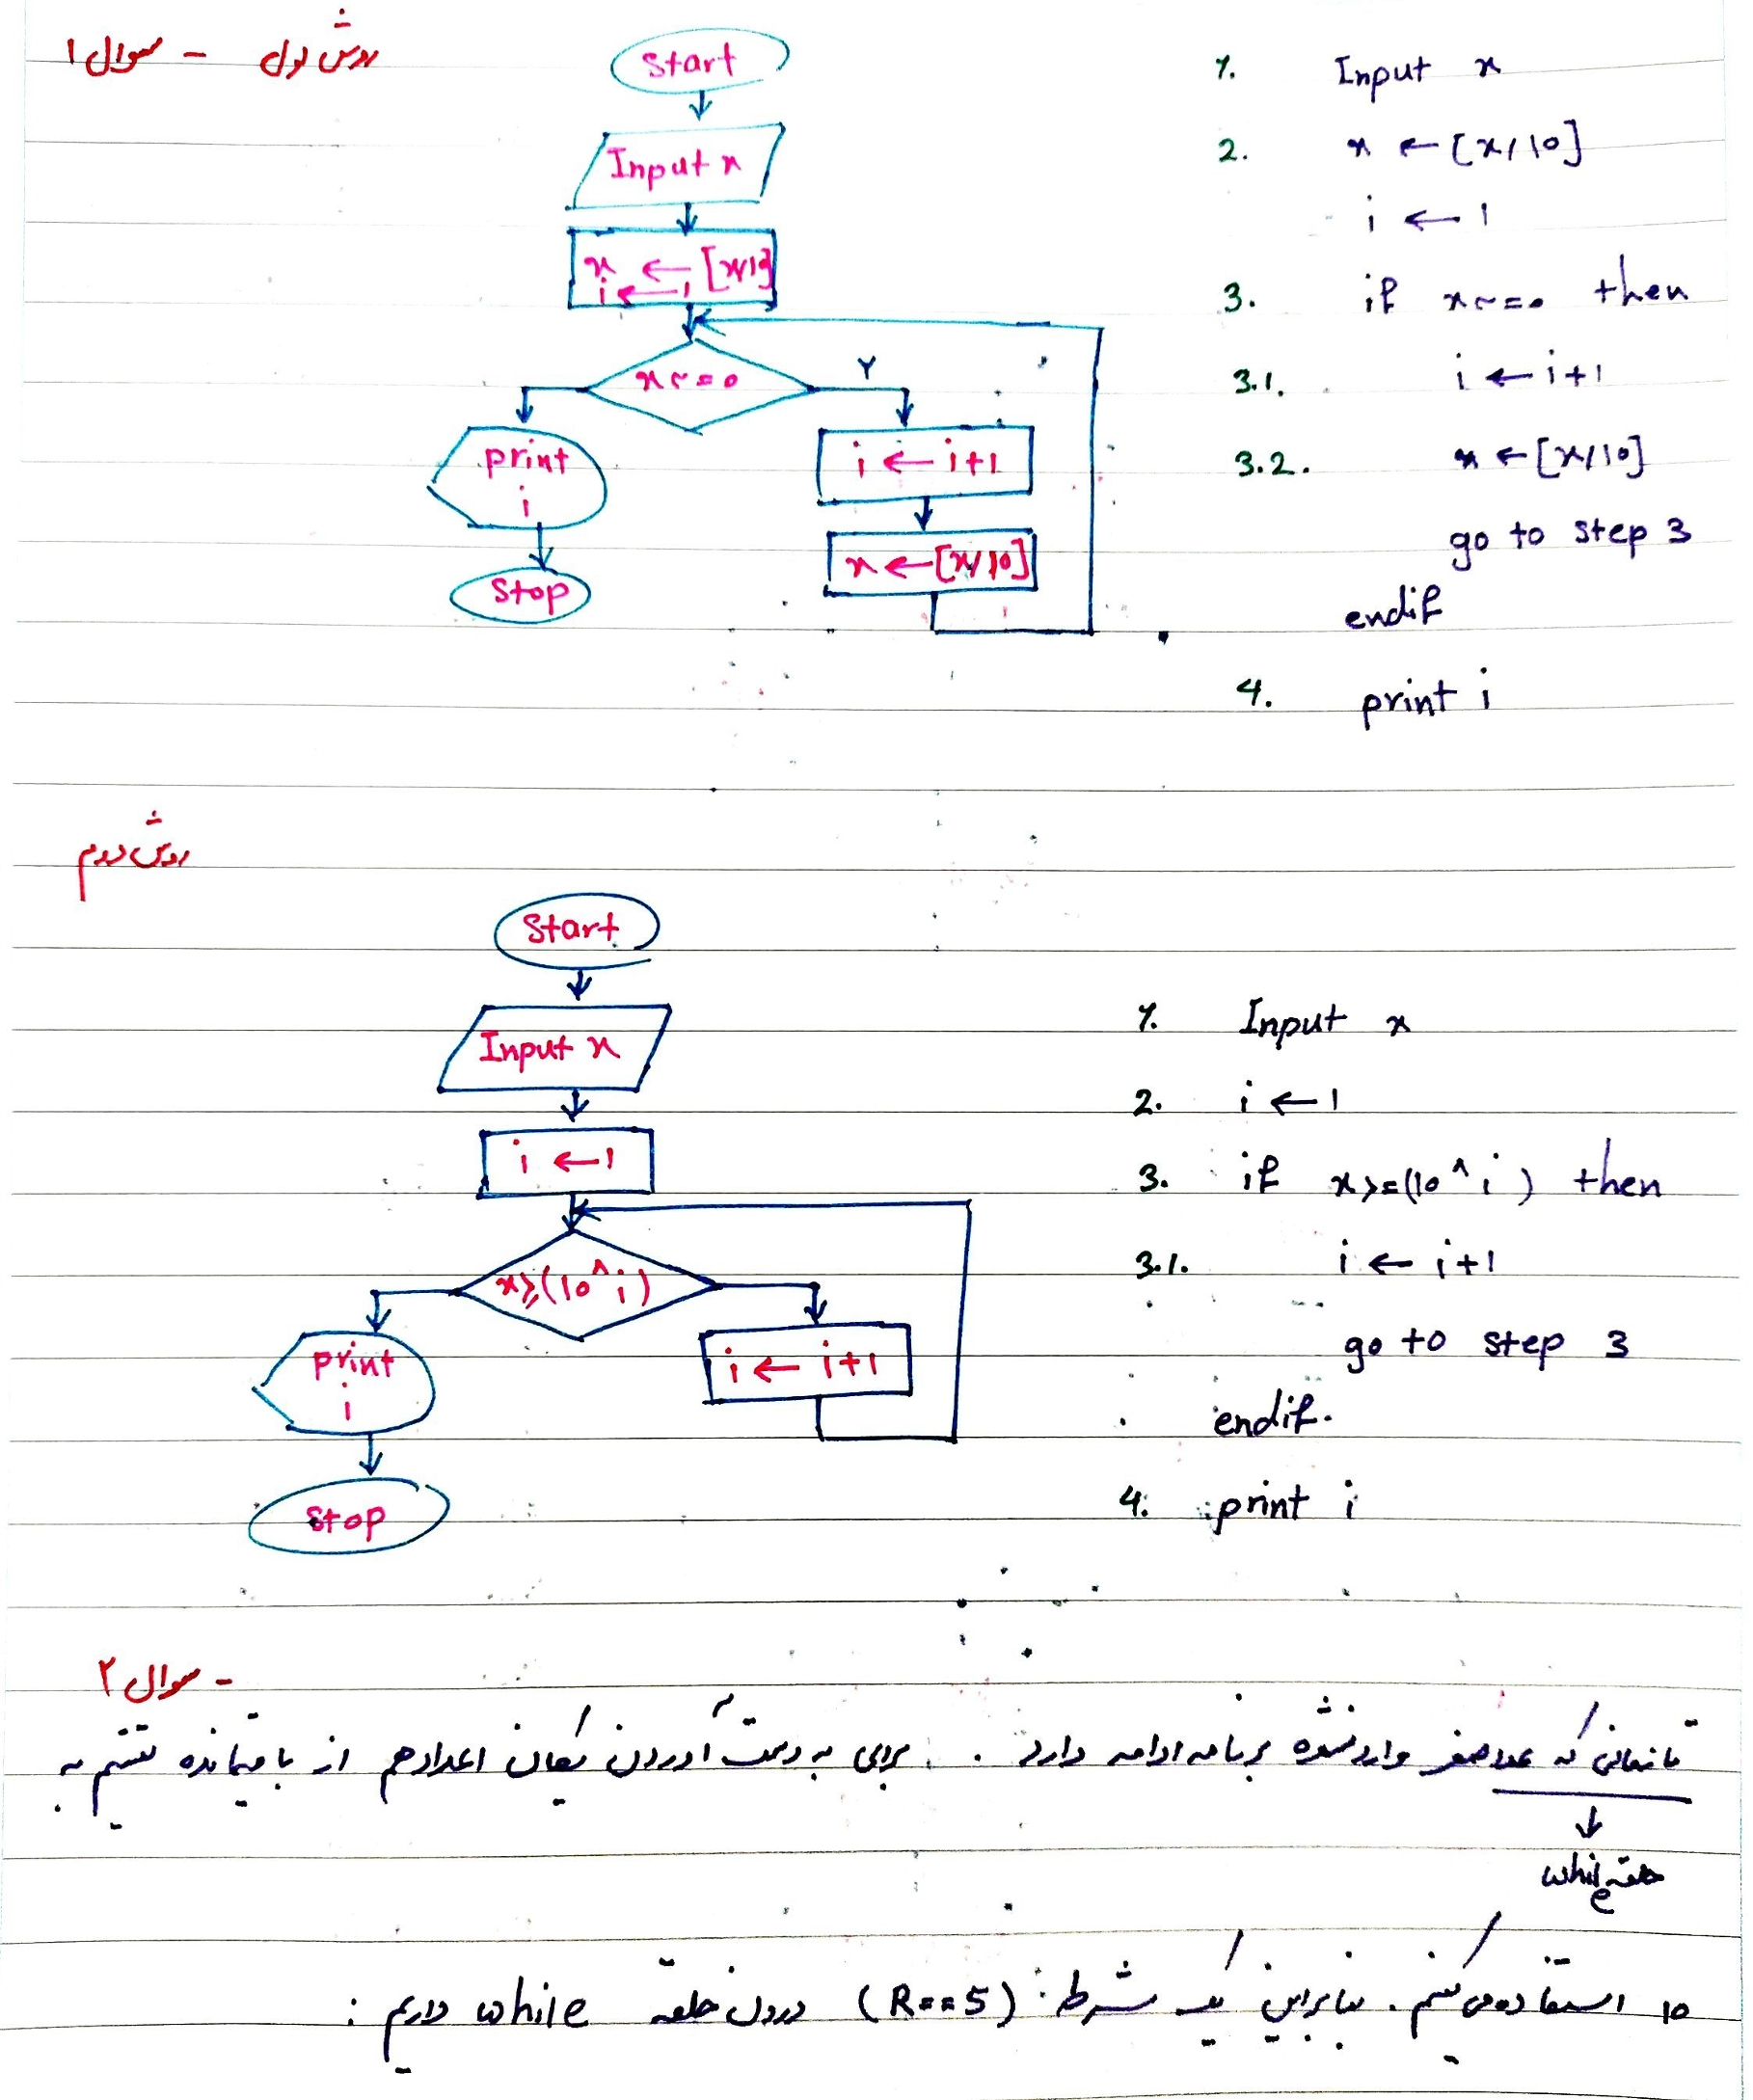 روش اول - سوال ۱
Start
Input x
x ← [x/10]
i ← 1
x ~= 0
Y
print
i
Stop
i ← i+1
x ← [x/10]
1. Input x
2. x ← [x/10]
i ← 1
3. if x ~= 0 then
3.1. i ← i+1
3.2. x ← [x/10]
go to step 3
endif
4. print i
روش دوم
Start
Input x
i ← 1
x≥(10^i)
print
i
Stop
i ← i+1
1. Input x
2. i ← 1
3. if x>=(10^i) then
3.1. i ← i+1
go to step 3
endif.
4. print i
- سوال ۲
تا زمانی که عدد صفر وارد نشده برنامه ادامه دارد . برای به دست آوردن یکان اعداد هم از باقیمانده تقسیم به
حلقه while
10 استفاده می کنیم. بنابراین یک شرط (R==5) درون حلقه while داریم :